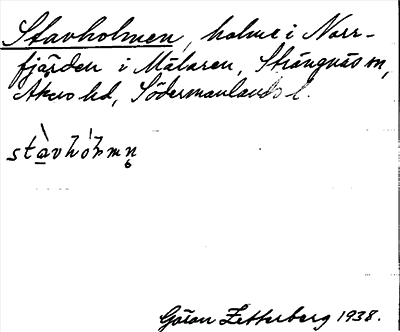 Stavholmen, holme i Norr-
fjärden i Mälaren, Strängnäs m,
Åkers hd, Södermanlands l.
stàvhólmn̥
Göran Zetterberg 1938.